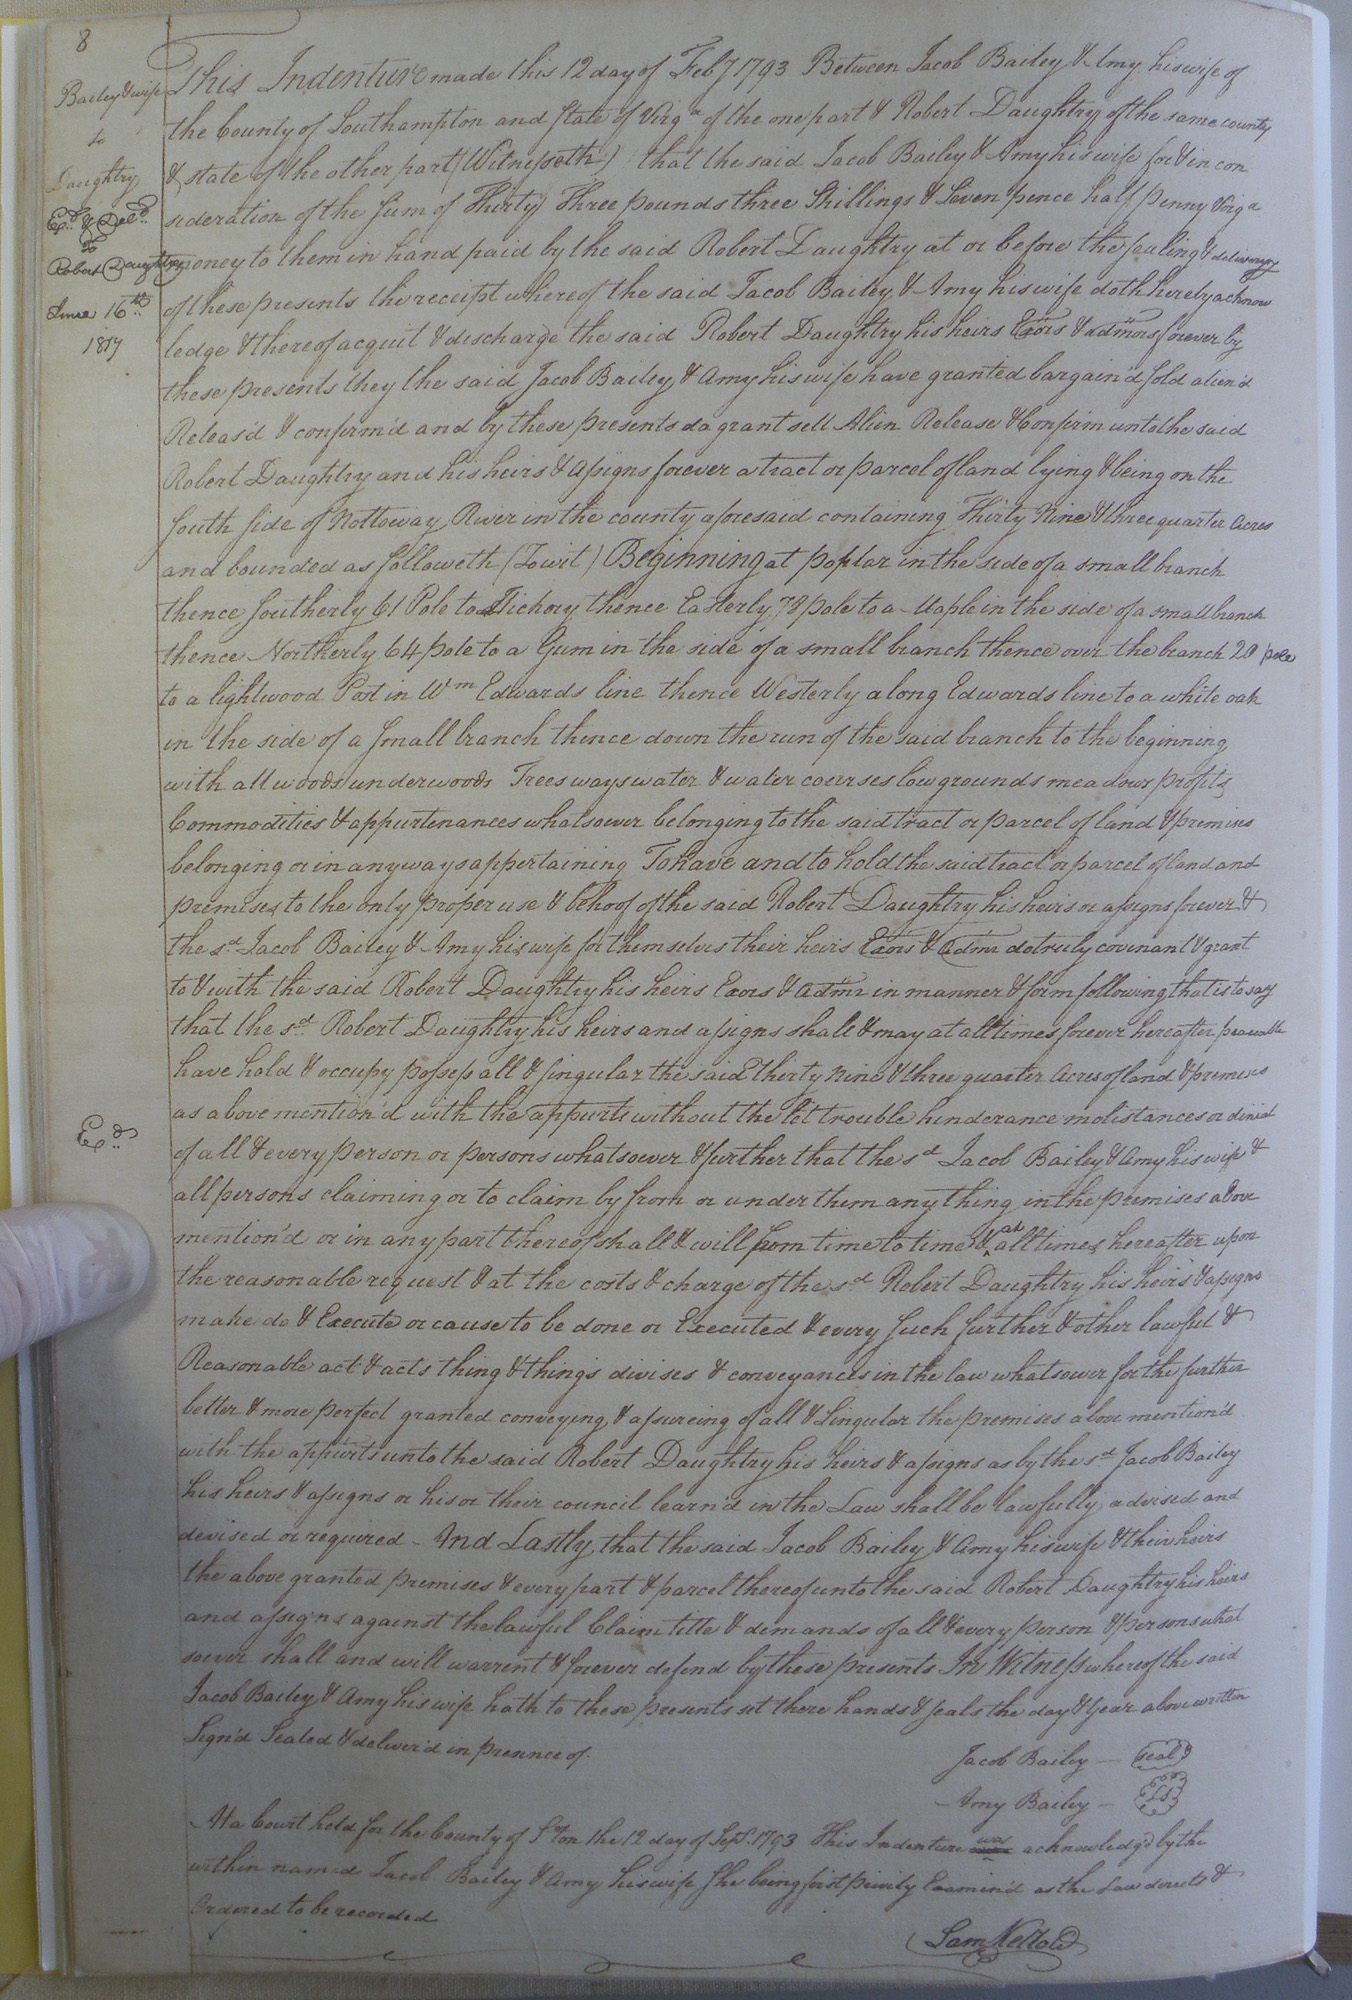 8
Bailey & wife
to
Daughtry
Exd. & Deld.
to
Robert Daughtry
June 16th
1817
This Indenture made this 12 day of Feby 1793 Between Jacob Bailey & Amy his wife of
the County of Southampton and State of Virga of the one part & Robert Daughtry of the same county
& state of the other part (Witnesseth) that the said Jacob Bailey & Amy his wife for & in con
sideration of the sum of Thirty Three pounds three Shillings & Seven pence half penny Virga
money to them in hand paid by the said Robert Daughtry at or before the sealing & delivery
of these presents the receipt whereof the said Jacob Bailey & Amy his wife doth hereby acknow
ledge & thereof acquit & discharge the said Robert Daughtry his heirs Exors & admors forever by
these presents they the said Jacob Bailey & Amy his wife have granted bargain'd sold alien'd
Releas'd & confirm'd and by these presents do grant sell Alien Release & Confirm unto the said
Robert Daughtry and his heirs & assigns forever a tract or parcel of land lying & being on the
South side of Nottoway River in the county aforesaid containing Thirty Nine & three quarter Acres
and bounded as followeth (Towit) Beginning at poplar in the side of a small branch
thence Southerly 61 Pole to a Hichory thence Easterly 78 pole to a Maple in the side of a small branch
thence Northerly 64 pole to a Gum in the side of a small branch thence over the branch 20 pole
to a lightwood Post in Wm Edwards line thence Westerly along Edwards line to a white oak
in the side of a small branch thence down the run of the said branch to the beginning
with all woods underwoods Trees ways water & water courses low grounds meadows profits
Commodities & appurtenances whatsoever belonging to the said tract or parcel of land & premises
belonging or in any ways appertaining To have and to hold the said tract or parcel of land and
premises to the only proper use & behoof of the said Robert Daughtry his heirs or assigns forever &
the sd. Jacob Bailey & Amy his wife for themselves their heirs Exors & Admrs do truly covenant & grant
to & with the said Robert Daughtry his heirs Exors & Admrs in manner & form following that is to say
that the sd. Robert Daughtry his heirs and assigns shall & may at all times forever hereafter peaceable
have hold & occupy possess all & singular the said Thirty Nine & three quarter Acres of land & premises
as above mention'd with the appurts without the let trouble hinderance molistances or
of all & every person or persons whatsoever & further that the sd. Jacob Bailey & Amy his wife &
Exd.
all persons claiming or to claim by from or under them any thing in the premises above
mention'd or in any part thereof shall & will from time to time & at all times hereafter upon
the reasonable request & at the costs & charge of the sd. Robert Daughtry his heirs & assigns
make do & Execute or cause to be done or Executed & every such further & other lawful &
Reasonable act & acts thing & things divises & conveyances in the law whatsoever for the further
better & more perfect granted conveying & assureing of all & Singular the premises above mention'd
with the appurts unto the said Robert Daughtry his heirs & assigns as by the sd. Jacob Bailey
his heirs & assigns or his or their council learn'd in the Law shall be lawfully advised and
devised or required - And Lastly that the said Jacob Bailey & Amy his wife & their heirs
the above granted premises & every part & parcel thereof unto the said Robert Daughtry his heirs
and assigns against the lawful Claim title & demands of all & every person & persons what
soever shall and will warrent & forever defend by these presents In Witness whereof the said
Jacob Bailey & Amy his wife hath to these presents set there hands & seals the day & year above written
Sign'd Sealed & deliver'd in presence of.
Jacob Bailey - seal
Amy Bailey - LS
At a Court held for the County of S'ton the 12 day of Sept. 1793 This Indenture was acknowledg'd by the
within named Jacob Bailey & Amy his wife She being first privily Examin'd as the Law directs &
Ordered to be recorded
Sam Kello